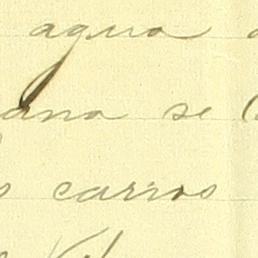 agua
ana se
carros